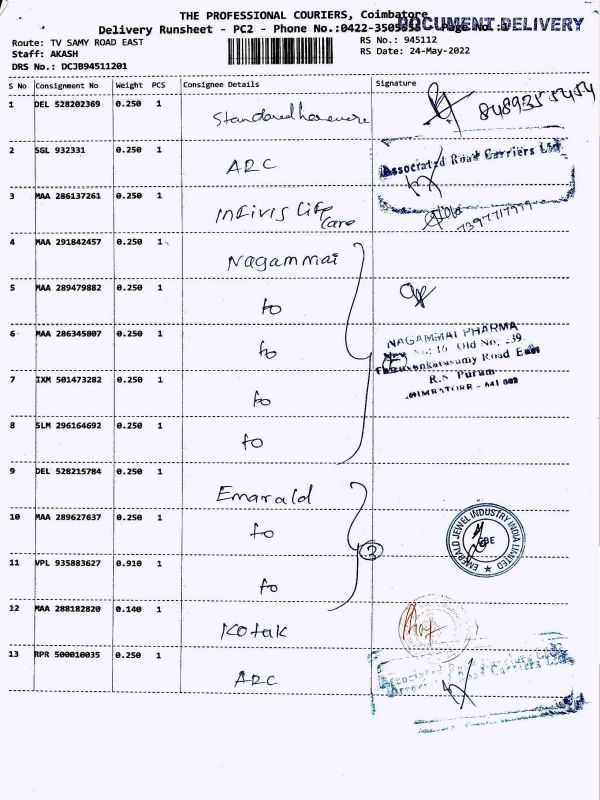 THE PROFESSIONAL COURIERS, Coimbatore
DOCUMENT DELIVERY
Delivery Runsheet - PC2 - Phone No.:0422-3505555 Page No :
Route: TV SAMY ROAD EAST RS No.: 945112
Staff: AKASH RS Date: 24-May-2022
DRS No.: DCJB94511201
S No Consignment No Weight PCS Consignee Details Signature
1 DEL 528202369 0.250 1
2 SGL 932331 0.250 1 ARC Associated Road Carriers Ltd
3 MAA 286137261 0.250 1 Infivis Life Care
4 MAA 291842457 0.250 1 Nagammai
5 MAA 289479882 0.250 1 to
6 MAA 286345807 0.250 1 to
NAGAMMAI PHARMA
No: 16 Old No: 239,
Thiruvenkatasamy Road East
R.S Puram
COIMBATORE - 641 002
7 IXM 501473282 0.250 1 to
8 SLM 296164692 0.250 1 to
9 DEL 528215784 0.250 1 Emarald
10 MAA 289627637 0.250 1 to
EMERALD JEWEL INDUSTRY INDIA LIMITED
11 VPL 935883627 0.910 1 to
3
12 MAA 288182820 0.140 1 Kotak
13 RPR 500010035 0.250 1 ARC
Associated Road Carriers Ltd